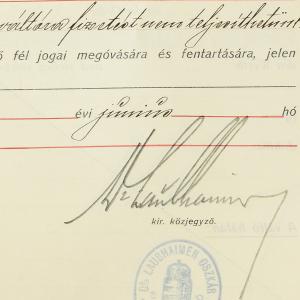 váltóra fizetést nem teljesíthetünk
ő fél jogai megóvására és fentartására, jelen
évi junius hó
Dr Laubhaimer
kir. közjegyző.
DR LAUBHAIMER OSZKÁR